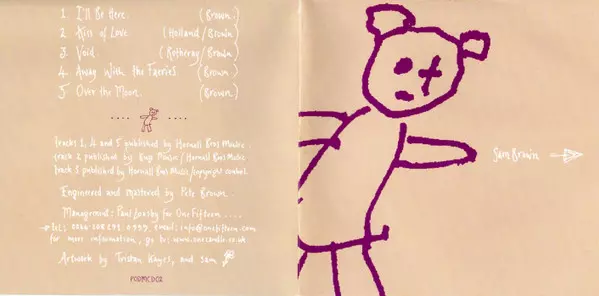 1. I'll Be Here. (Brown.)
2. Kiss of Love (Holland/Brown)
3. Void. (Rotheray/Brown)
4. Away With the Faeries (Brown)
5 Over the Moon. (Brown.)
Tracks 1, 4 and 5 published by Hornall Bros Music
track 2 published by Bugs Music/Hornall Bros Music
Track 3 published by Hornall Bros Music/copyright control.
Engineered and mastered by Pete Brown.
Management: Paul for One Fifteen ....
Tel: email: info@onefifteen.com
for more information, go to: www.
Artwork by Tristan Hayes, and Sam
PODMCD02
Sam Brown